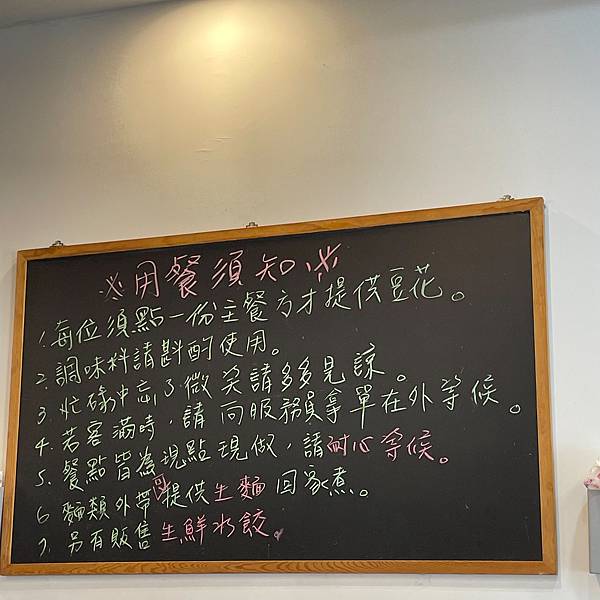 ※用餐須知※
1. 每位須點一份主餐方才提供豆花。
2. 調味料請斟酌使用。
3. 忙碌中忘了微笑請多多見諒。
4. 若客滿時，請向服務員拿單在外等候。
5. 餐點皆為現點現做，請耐心等候。
6. 麵類外帶可提供生麵回家煮。
7. 另有販售生鮮水餃